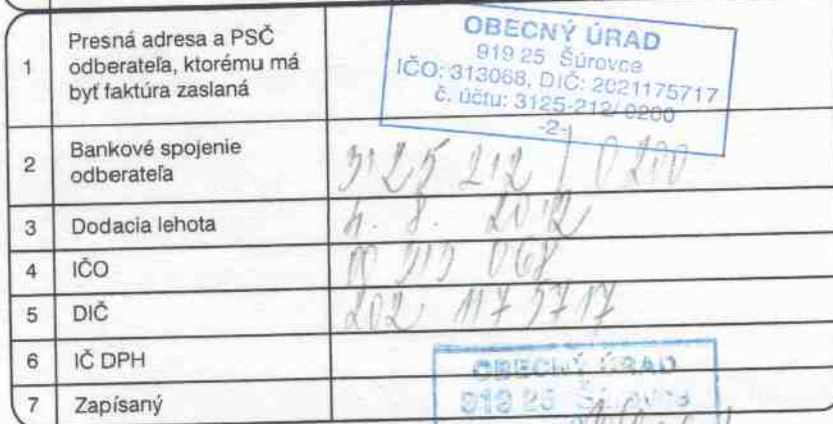 1 Presná adresa a PSČ
odberateľa, ktorému má
byť faktúra zaslaná
OBECNÝ ÚRAD
919 25 Šúrovce
IČO: 313068, DIČ: 2021175717
č. účtu: 3125-212/0200
-2-
2 Bankové spojenie
odberateľa
3125 212 / 0200
3 Dodacia lehota
4. 8. 2012
4 IČO
00 313 068
5 DIČ
202 117 5717
6 IČ DPH
7 Zapísaný
OBECNÝ ÚRAD
919 25 Šúrovce